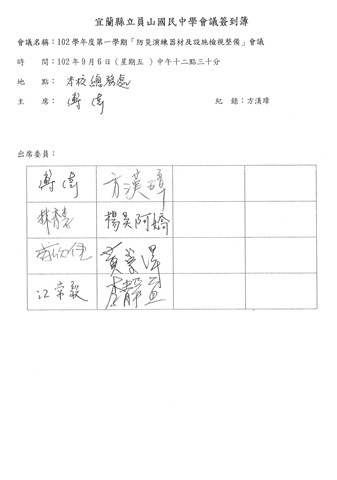 宜蘭縣立員山國民中學會議簽到簿
會議名稱：102 學年度第一學期「防災演練器材及設施檢視整備」會議
時　　間：102 年 9 月 6 日（星期五 ）中午十二點三十分
地　　點：本校總務處
主　　席：　　紀 錄：方漢璋
出席委員：
方漢璋
楊吳阿嬌
江常毅